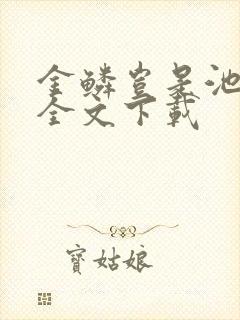 金鱗豈是池
全文下載
寶姑娘